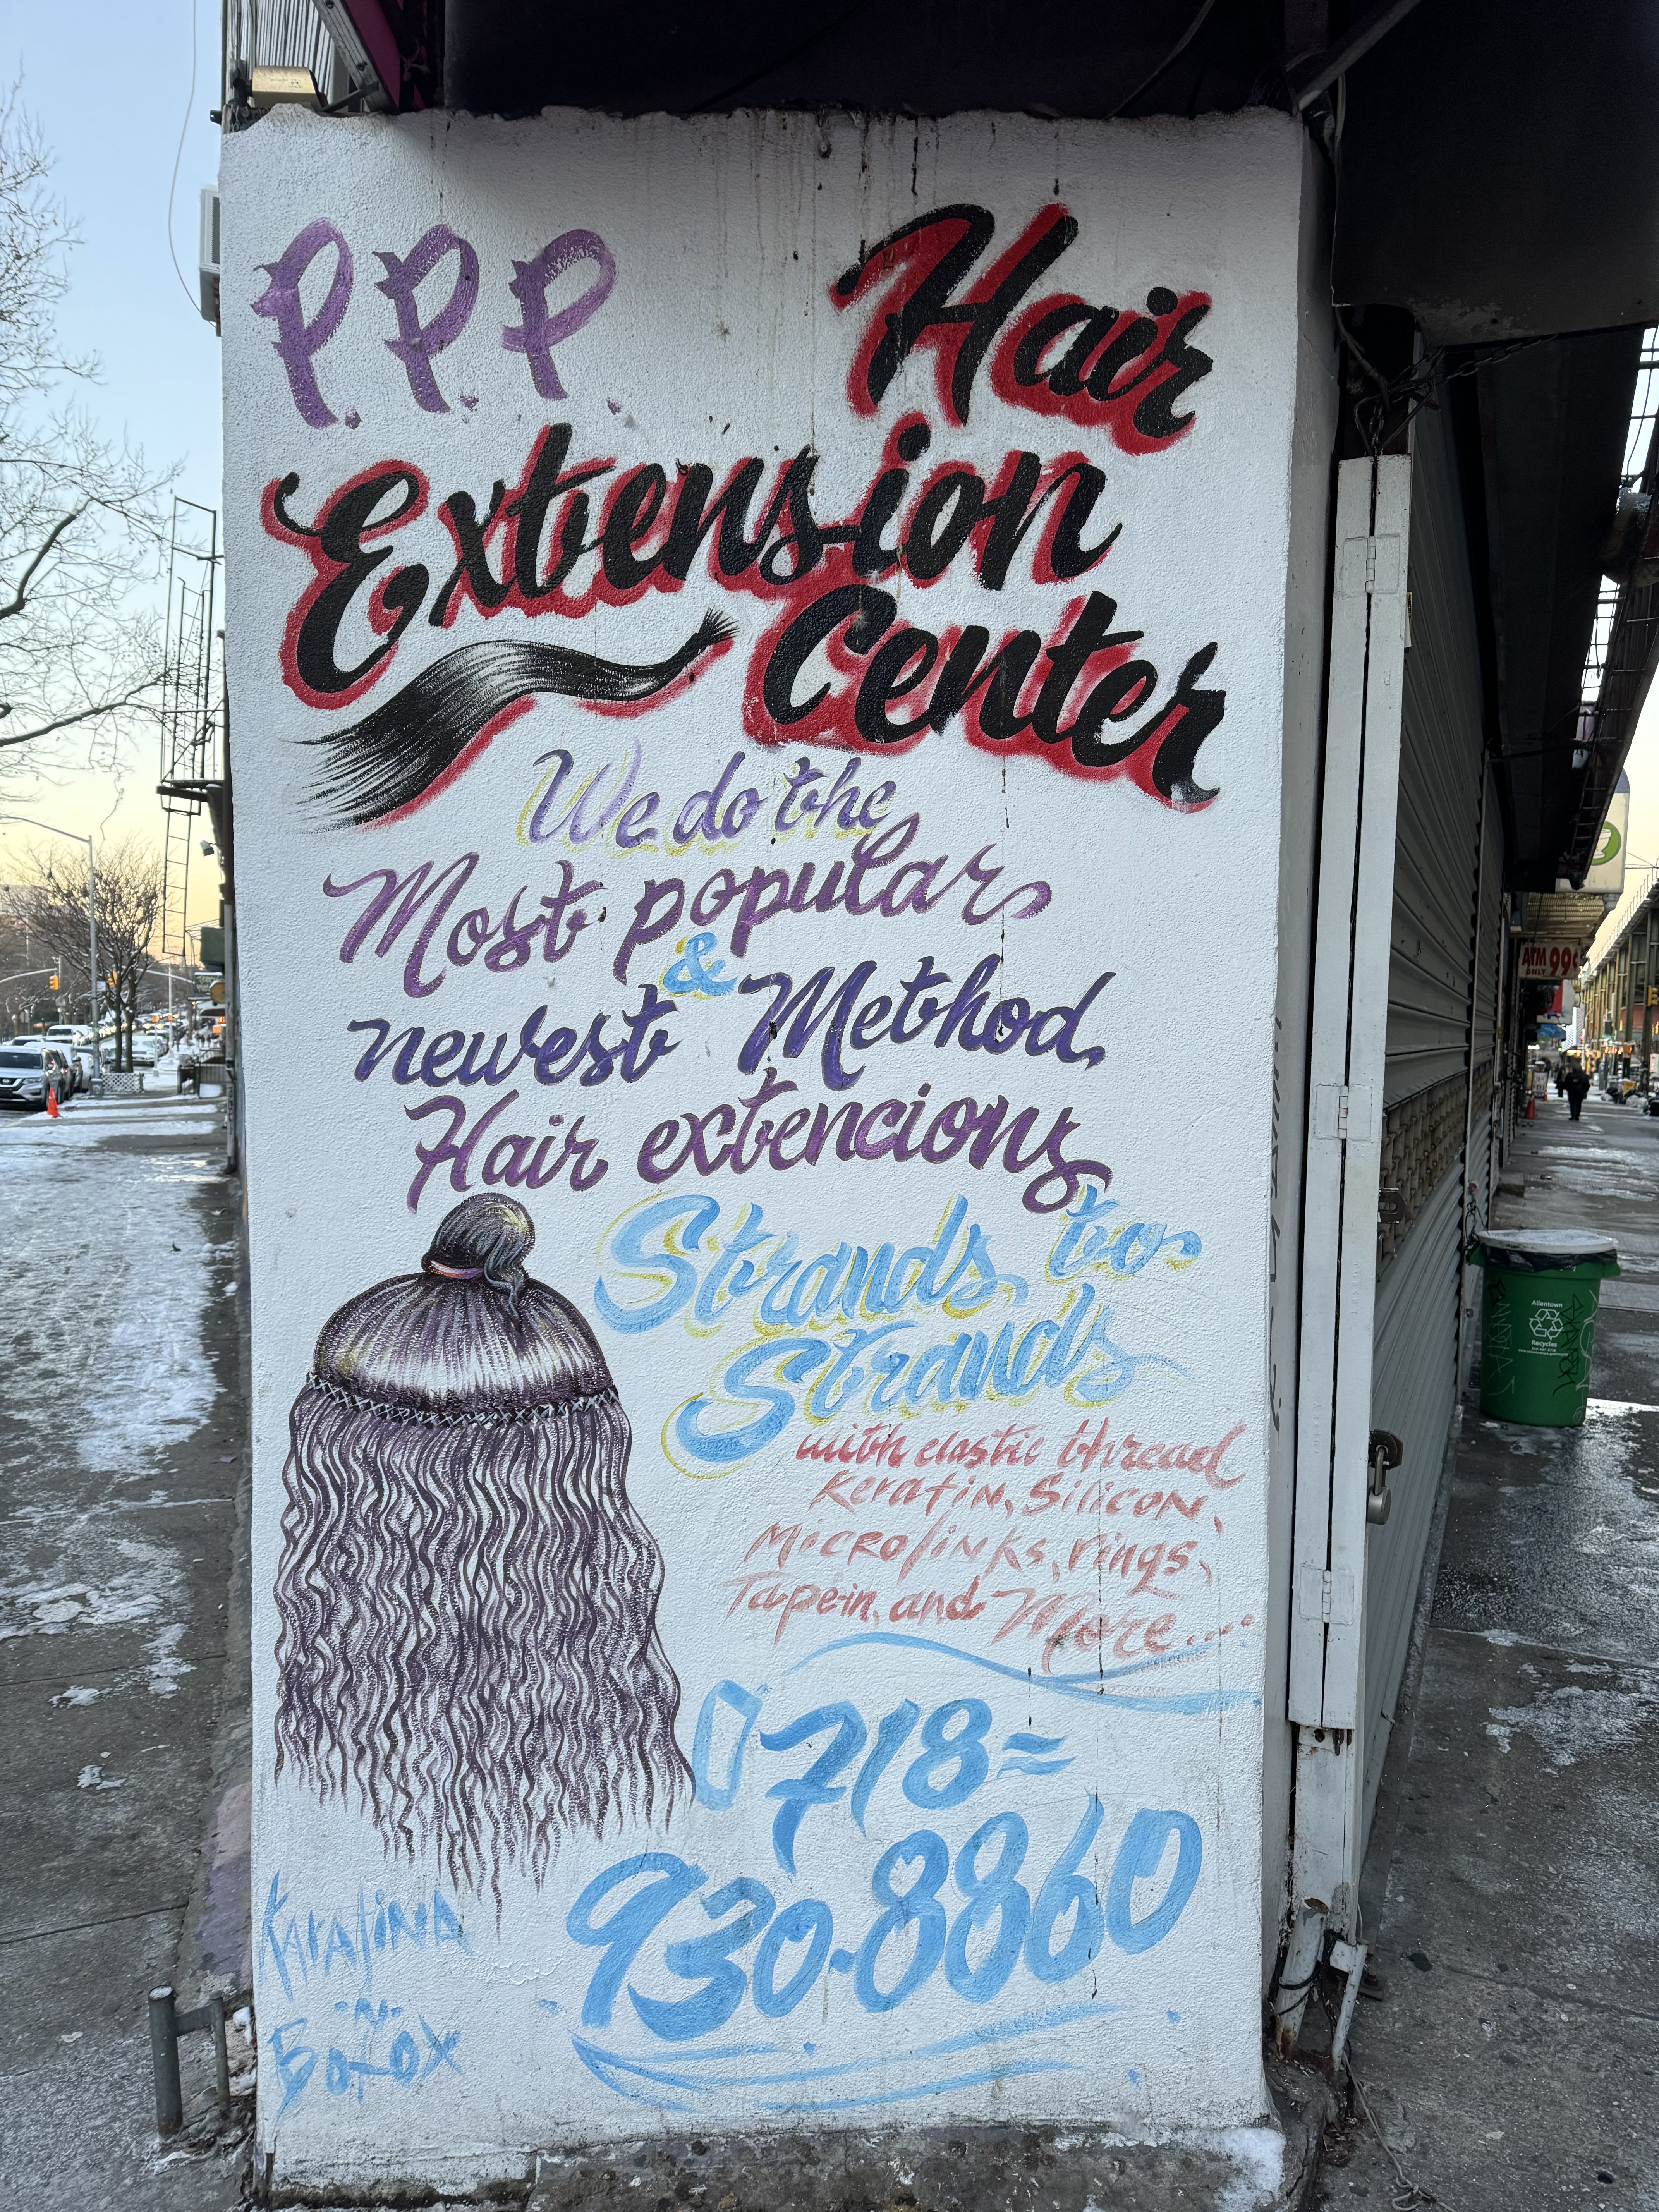 P.P.P. Hair
Extension
Center
We do the
Most popular
&
newest Method,
Hair extencions
Strands to
Strands
with elastic thread
Keratin, Silicon,
Microlinks, rings,
Tapein, and More....
718=
930-8860
Keratina
-N-
Botox
ATM 99¢
ONLY
Allentown
Recycles